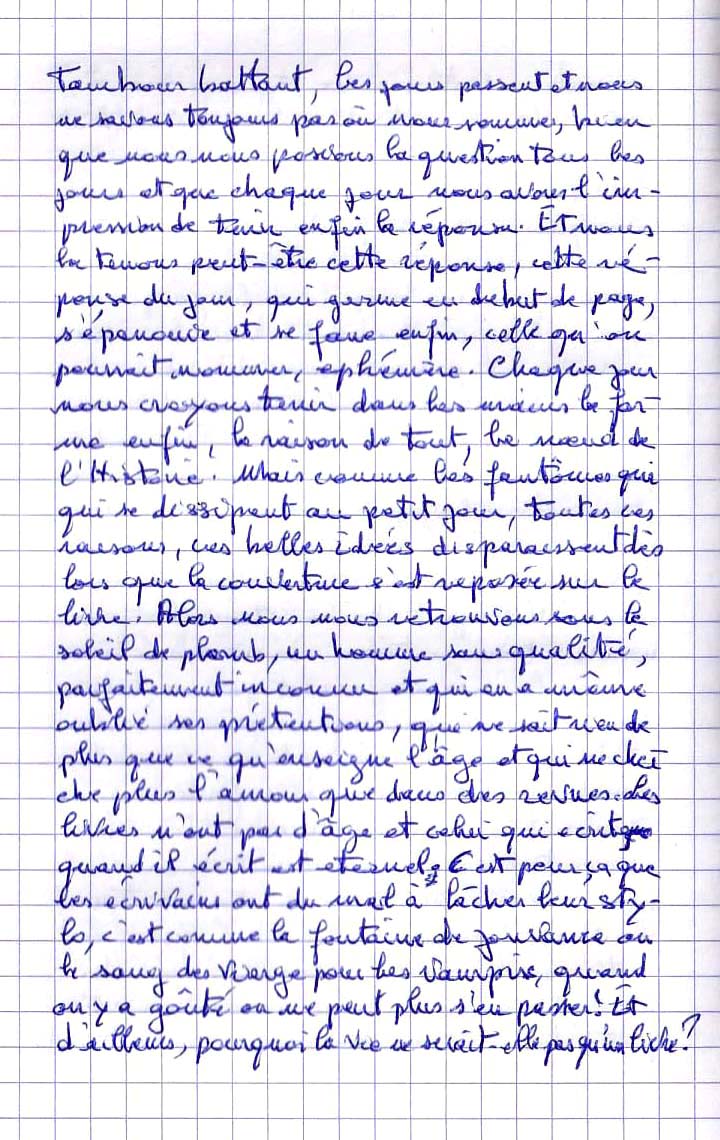 Tambour battant, les jours passent et nous
ne savons toujours pas où nous sommes, bien
que nous nous posions la question tous les
jours et que chaque jour nous avons l'im-
pression de tenir enfin la réponse. Et nous
la tenons peut-être cette réponse, cette ré-
ponse du jour, qui germe en debut de page,
s'épanouie et se fane enfin, celle qu'on
pourrait nommer, ephémère. Chaque jour
nous croyons tenir dans les mains la for-
me enfin, la raison de tout, le nœud de
l'Histoire. Mais comme les fantômes qui
qui se dissipent au petit jour, toutes ces
raisons, ces belles idées disparaissent dès
lors que la couverture s'est reposée sur le
livre. Alors nous nous retrouvons sous le
soleil de plomb, un homme sans qualité,
parfaitement inconnu et qui en a même
oublié ses prétentions, qui ne sait rien de
plus que ce qu'enseigne l'âge et qui ne cher
che plus l'amour que dans des revues. Les
livres n'ont pas d'âge et celui qui écrit
quand il écrit est eternel. C'est pour ça que
les écrivains ont du mal à lâcher leur sty-
lo, c'est comme la fontaine de jouvance ou
le sang des vierge pour les vampire, quand
on y a goûté on ne peut plus s'en passer! Et
d'ailleurs, pourquoi la vie ne serait-elle pas qu'un livre?